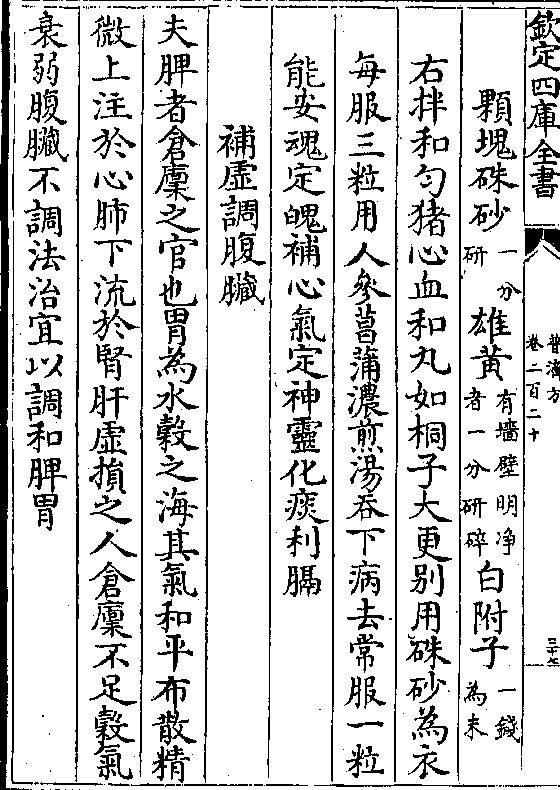 欽定四庫全書
普濟方
卷二百二十
顆塊硃砂一分研 雄黃有墻壁明净者一分研碎 白附子一錢為末
右拌和勻猪心血和丸如桐子大更别用硃砂為衣
每服三粒用人參菖蒲濃煎湯吞下病去常服一粒
能安魂定魄補心氣定神靈化痰利膈
補虛調腹臟
夫脾者倉廩之官也胃為水穀之海其氣和平布散精
微上注於心肺下流於腎肝虛損之人倉廩不足穀氣
衰弱腹臟不調法治宜以調和脾胃